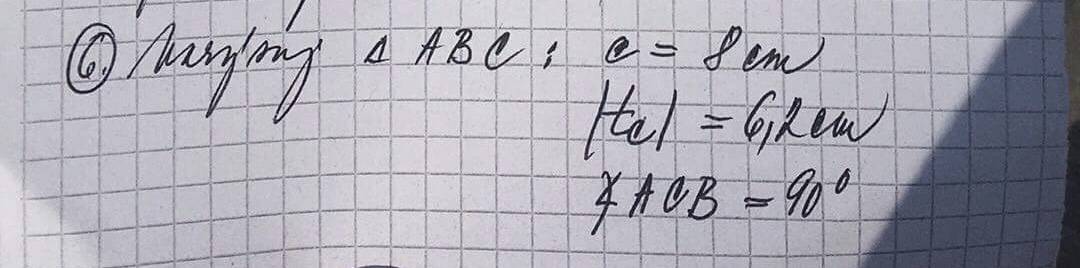 6. Narysuj △ ABC: c = 8 cm
|tc| = 6,2 cm
∢ ACB = 90°